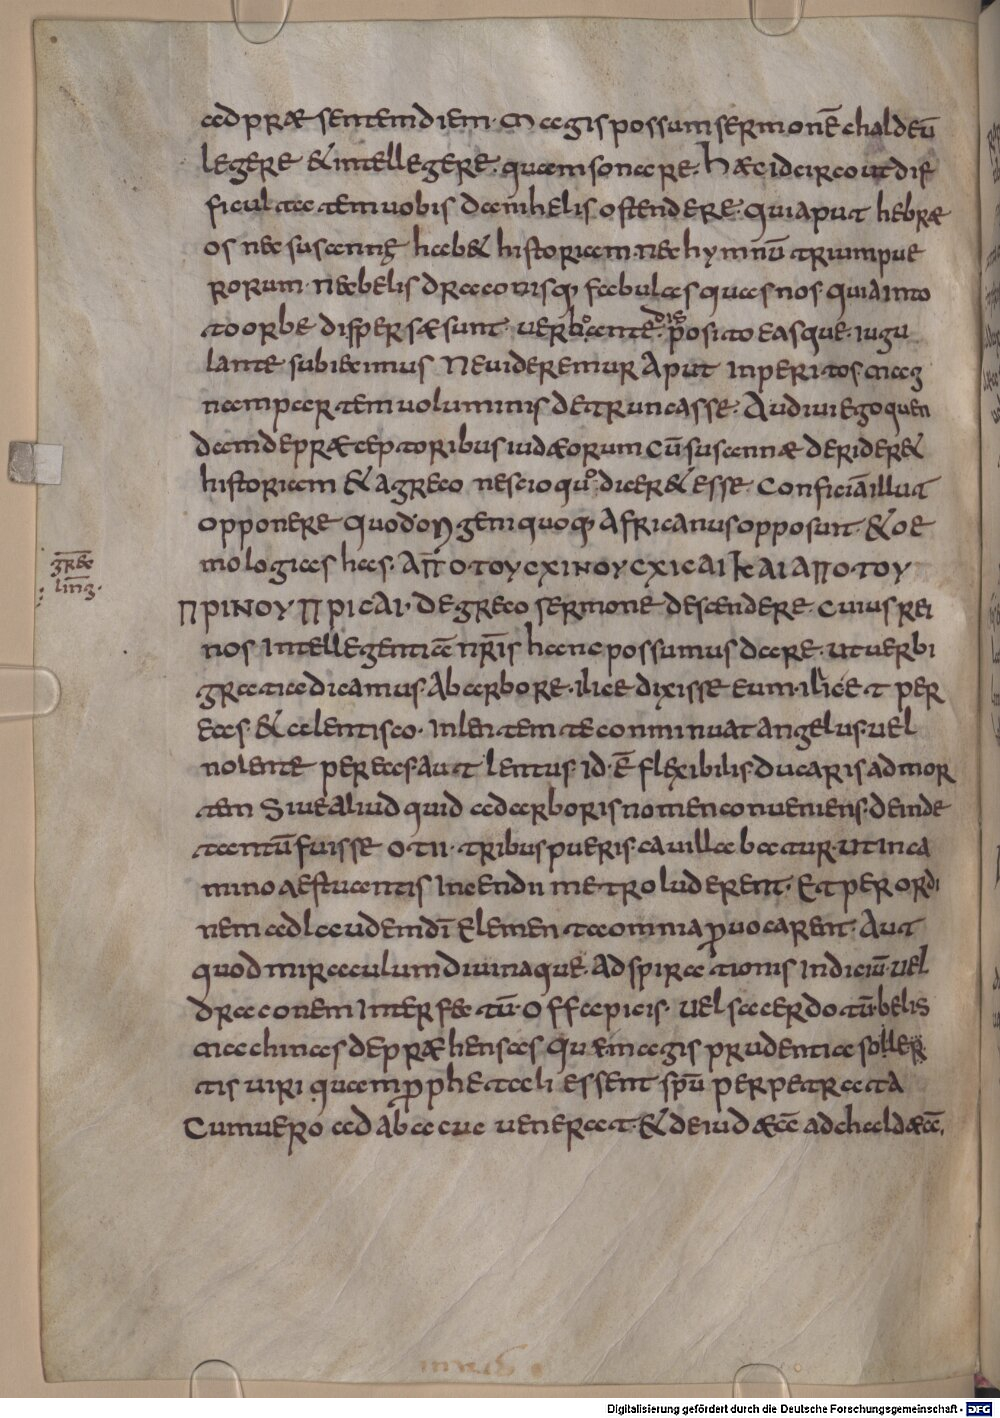 ad præsentem diem. Magis possum sermonē chaldeū
legere & intellegere. quam sonare. Hæc idcirco ut dif
ficultatem uobis danihelis ostendere. qui aput hebræ
os nec susannę hab& historiam. nec hymnū trium pue
rorum. nec belis draconisq; fabulas quas nos. quia in to
to orbe dispersæ sunt. ueru anteposito easque. iugu
lante subiecimus Ne uideremur aput inperitos. mag
nam partem uoluminis detruncasse. Audiui ego quen
dam de præceptoribus iudæorum cū susannæ derider&
historiam & a greco nescio quo dicer& esse confictā illut
opponere quod origeni quoq; africanus opposuit. & oe
mologias has. ΑΠΟ ΤΟΥ CΧΙΝΟΥ CΧΙCΑΙ ΚΑΙ ΑΠΟ ΤΟΥ
grec
ling.
ΠΡΙΝΟΥ ΠΡΙCΑΙ. de greco sermone descendere. Cuius rei
nos intellegentiā nr̄is hanc possumus dare. ut uerbi
gratia dicamus. Ab arbore. ilice dixisse eum. ilice t per
eas. & a lentisco. in lentem te conminuat angelus. uel
non lente pereas. aut lentus. id. ē flexibilis. ducaris ad mor
tem Siue aliud quid ad arboris nomen conueniens. deinde
tantū fuisse otii. tribus pueris. cauillabatur. ut in ca
mino aestuantis incendii metro luderent. Et per ordi
nem ad laudem dī elementa omnia p̱uocarent. Aut
quod miraculum diuinaque. adspirationis indiciū. uel
draconem interfectū. offa picis. uel sacerdotū. belis
machinas depræhensas quæ magis prudentia soller
tis uiri quam p̱phetali essent spū perpetrata
Cum uero ad abacuc uenerat. & de iudæā ad chaldæā,
Digitalisierung gefördert durch die Deutsche Forschungsgemeinschaft - DFG